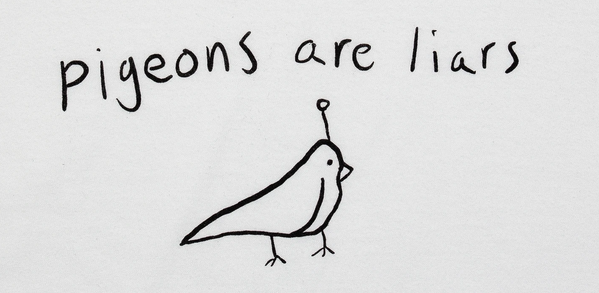 pigeons are liars